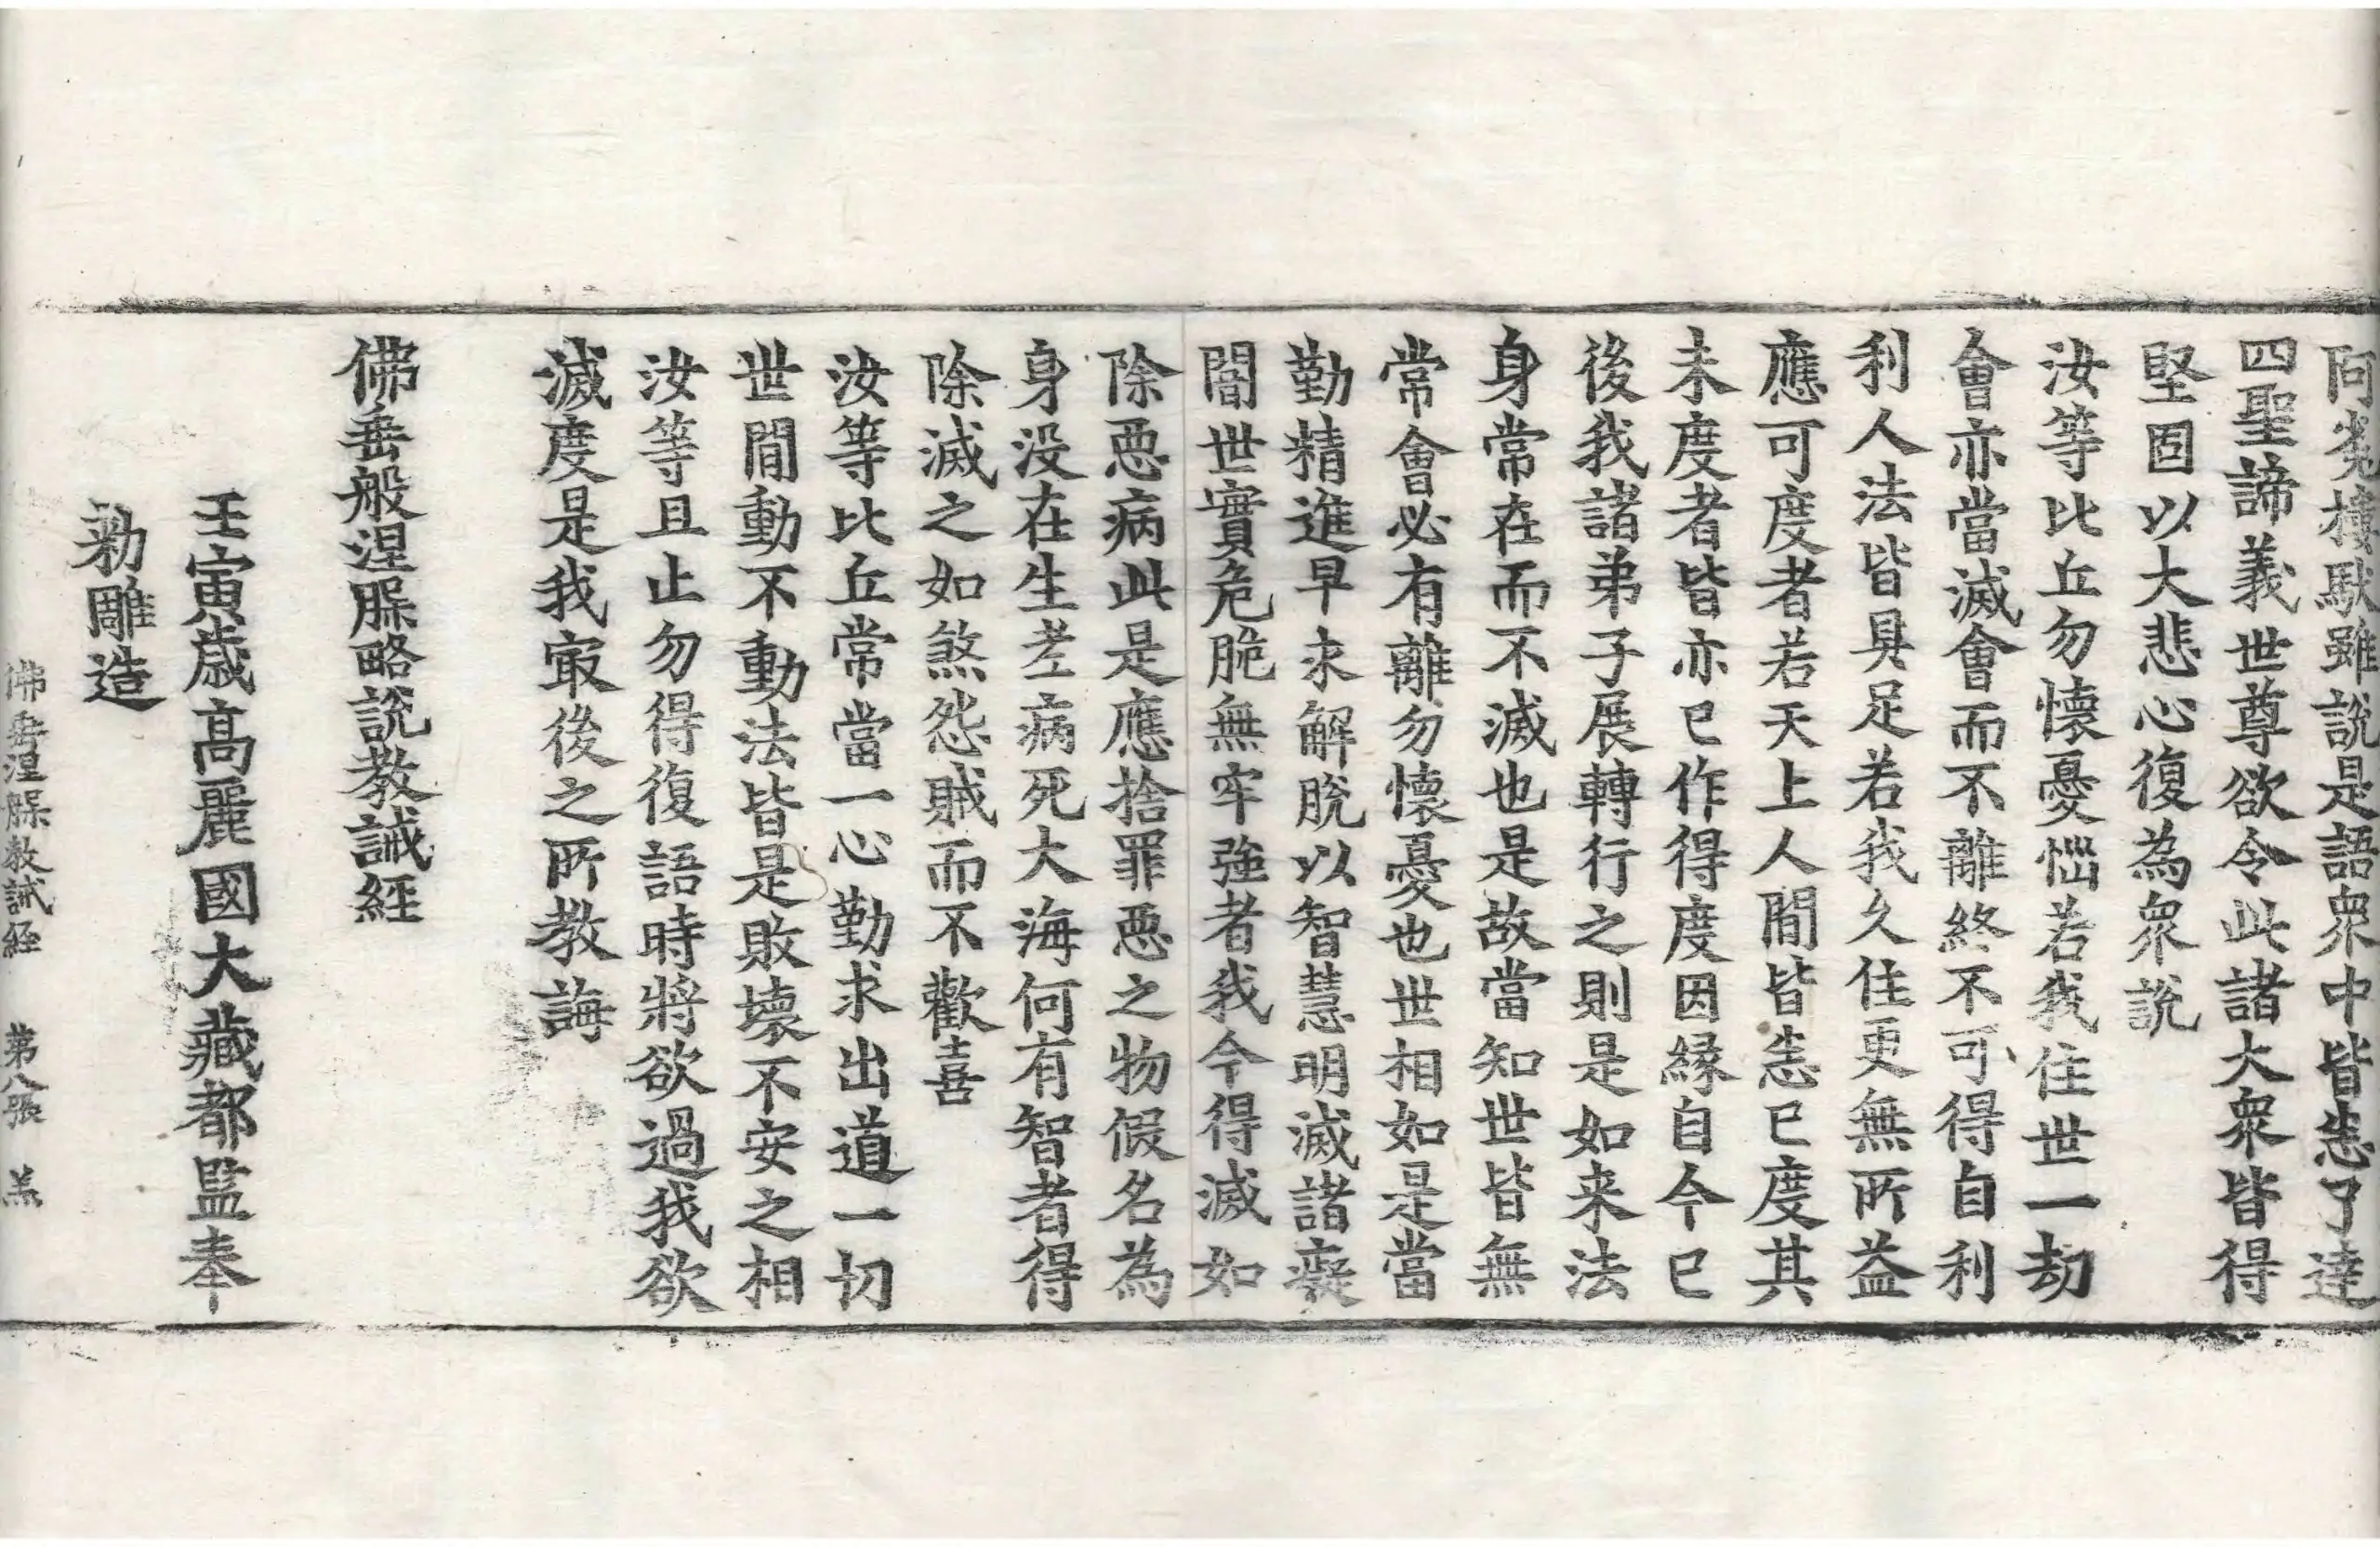 阿㝹樓馱雖說是語衆中皆悉了達
四聖諦義世尊欲令此諸大衆皆得
堅固以大悲心復為衆說
汝等比丘勿懷憂惱若我住世一劫
會亦當滅會而不離終不可得自利
利人法皆具足若我久住更無所益
應可度者若天上人間皆悉已度其
未度者皆亦已作得度因緣自今已
後我諸弟子展轉行之則是如来法
身常在而不滅也是故當知世皆無
常會必有離勿懷憂也世相如是當
勤精進早求解脫以智慧明滅諸癡
闇世實危脆無牢強者我今得滅如
除惡病此是應捨罪惡之物假名為
身没在生老病死大海何有智者得
除滅之如煞怨賊而不歡喜
汝等比丘常當一心勤求出道一切
世間動不動法皆是敗壞不安之相
汝等且止勿得復語時將欲過我欲
滅度是我㝡後之所教誨
佛垂般涅槃略說教誡經
壬寅歳高麗國大藏都監奉
勑雕造
佛垂涅槃教誡經 第八張 羔